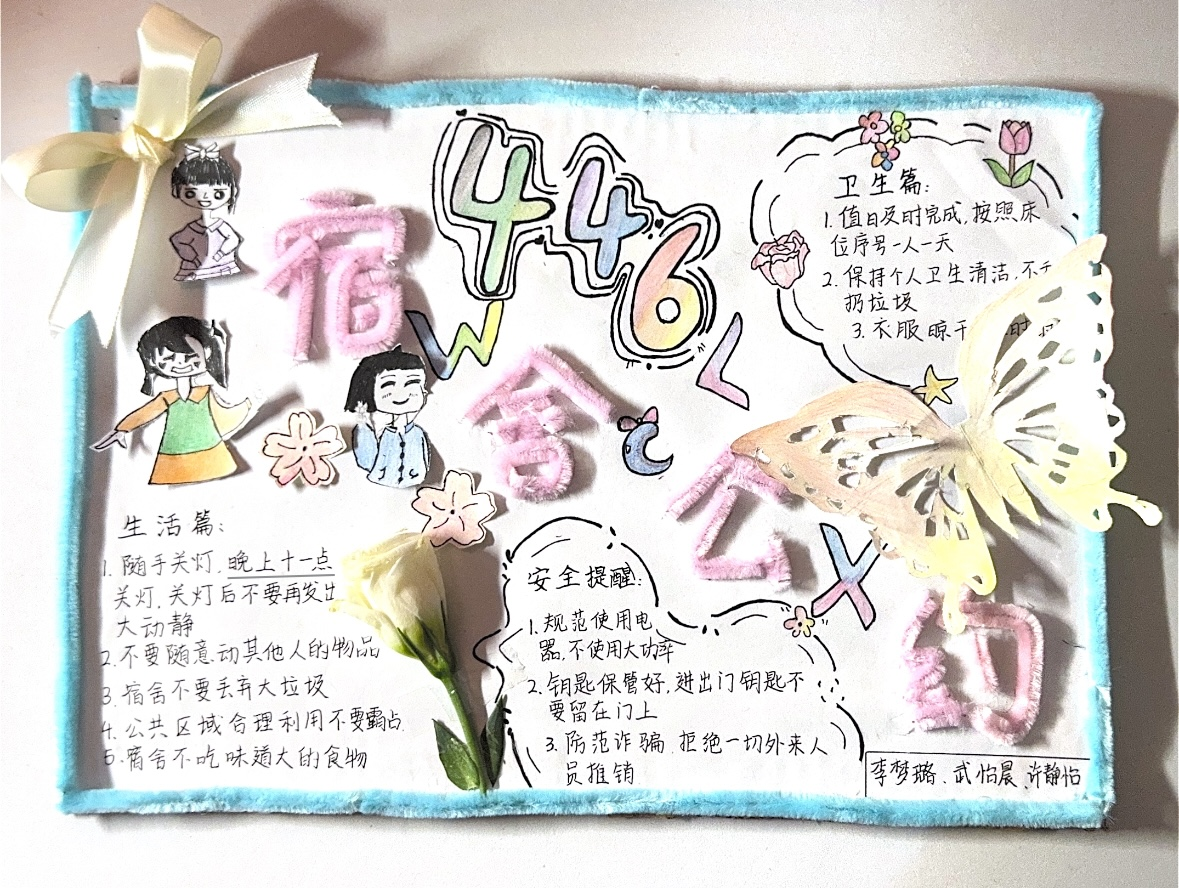 446
宿舍公约
W
L
C
X
卫生篇:
1. 值日及时完成,按照床
位序号一人一天
2. 保持个人卫生清洁,不
扔垃圾
3. 衣服晾干
生活篇:
1. 随手关灯,晚上十一点
关灯,关灯后不要再发出
大动静
2. 不要随意动其他人的物品
3. 宿舍不要丢弃大垃圾
4. 公共区域合理利用不要霸占
5. 宿舍不吃味道大的食物
安全提醒:
1. 规范使用电
器,不使用大功率
2. 钥匙保管好,进出门钥匙不
要留在门上
3. 防范诈骗,拒绝一切外来人
员推销
李梦璐、武怡晨、许静怡